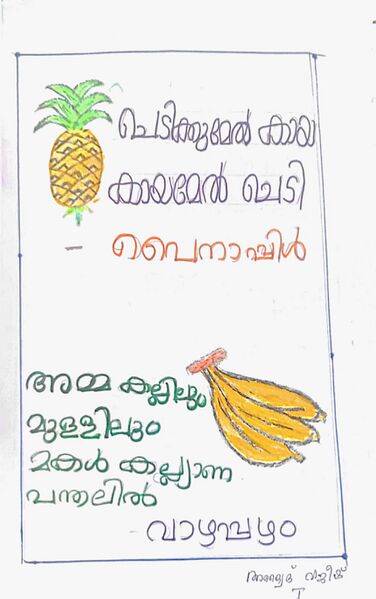 ചെടിക്കുമേൽ കായ
കായമേൽ ചെടി
- പൈനാപ്പിൾ
അമ്മ കല്ലിലും
മുള്ളിലും
മകൾ കല്ല്യാണ
പന്തലിൽ
- വാഴപ്പഴം